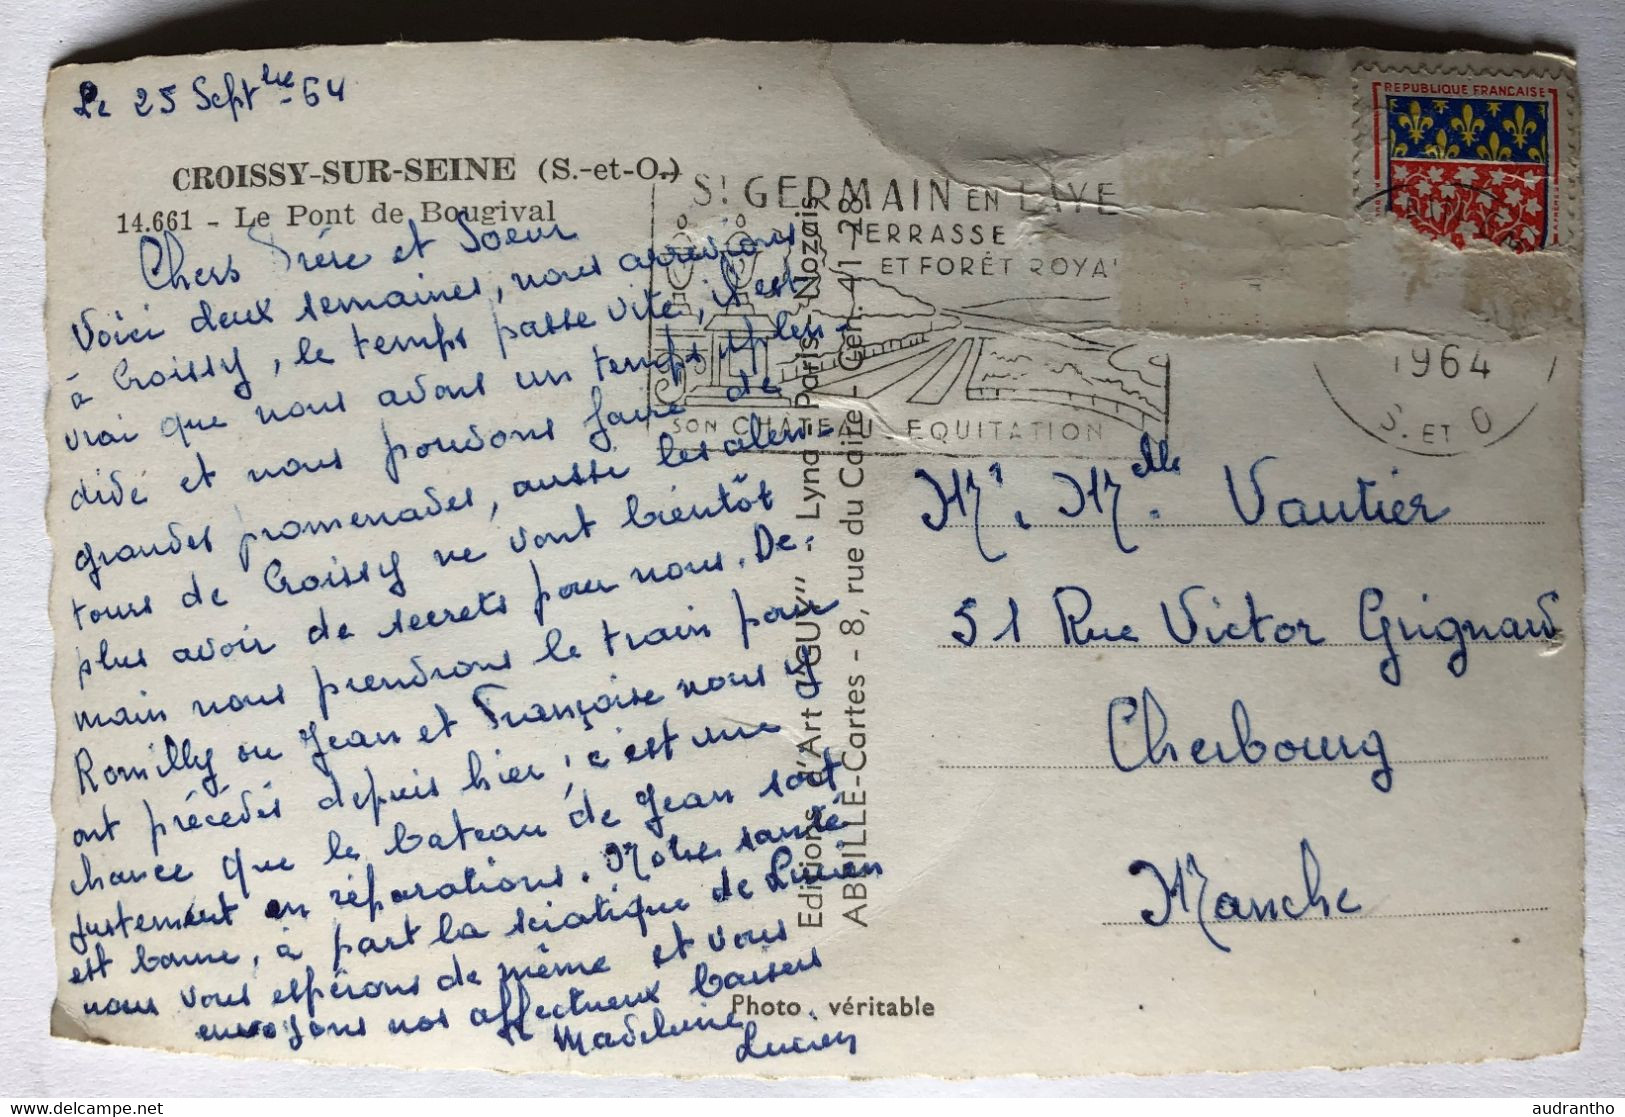 Le 25 Septbre - 64
CROISSY-SUR-SEINE (S.-et-O.)
14.661 - Le Pont de Bougival
Chers Frére et Soeur
Voici deux semaines, nous arrivions
à Croissy, le temps passe vite, il est
vrai que nous avons un temps splen-
dide et nous pouvons faire de
grandes promenades, aussi les alen-
tours de Croissy ne vont bientôt
plus avoir de secrets pour nous. De-
main nous prendrons le train pour
Romilly ou Jean et Françoise nous y
ont précédés depuis hier, c'est une
chance que le bateau de Jean soit
justement en réparations. Notre santé
est bonne, à part la sciatique de Lucien
nous vous espérons de même et vous
envoyons nos affectueux baisers
Madeleine
Lucien
Editions d'Art "GUY" - Lyna Paris - Nozais
ABEILLE-Cartes - 8, rue du Caire - Gen. 41 28
Photo véritable
ST GERMAIN EN LAYE
TERRASSE
ET FORÊT ROYA
SON CHATEAU EQUITATION
REPUBLIQUE FRANCAISE
1964
S. ET O
Mr. Melle. Vautier
51 Rue Victor Grignard
Cherbourg
Manche
audrantho